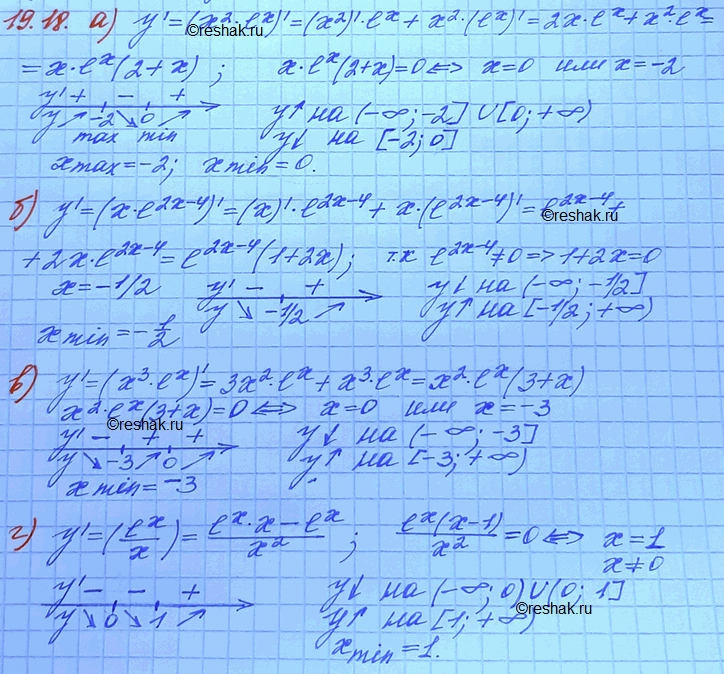 19.18. а) y'=(x²·eˣ)'=(x²)'·eˣ+x²·(eˣ)'=2x·eˣ+x²·eˣ=
©reshak.ru
=x·eˣ(2+x); x·eˣ(2+x)=0⇔ x=0 или x=-2
y' + - +
y ↗ -2 ↘ 0 ↗ y↑ на (-∞;-2]∪[0;+∞)
max min y↓ на [-2;0]
xmax=-2; xmin=0.
б) y'=(x·e²ˣ⁻⁴)'=(x)'·e²ˣ⁻⁴+x·(e²ˣ⁻⁴)'=e²ˣ⁻⁴+
©reshak.ru
+2x·e²ˣ⁻⁴=e²ˣ⁻⁴(1+2x); т.к e²ˣ⁻⁴≠0=>1+2x=0
x=-1/2 y' - + y↓ на (-∞;-1/2]
y ↘ -1/2 ↗ y↑ на [-1/2;+∞)
xmin=-1/2
в) y'=(x³·eˣ)'=3x²·eˣ+x³·eˣ=x²·eˣ(3+x)
x²·eˣ(3+x)=0⇔ x=0 или x=-3
©reshak.ru
y' - + + y↓ на (-∞;-3]
y ↘ -3 ↗ 0 ↗ y↑ на [-3;+∞)
xmin=-3
г) y'=(eˣ/x)=(eˣ·x-eˣ)/x²; eˣ(x-1)/x²=0⇔ x=1
x≠0
y' - - + y↓ на (-∞;0)∪(0;1]
©reshak.ru
y ↘ 0 ↘ 1 ↗ y↑ на [1;+∞)
xmin=1.